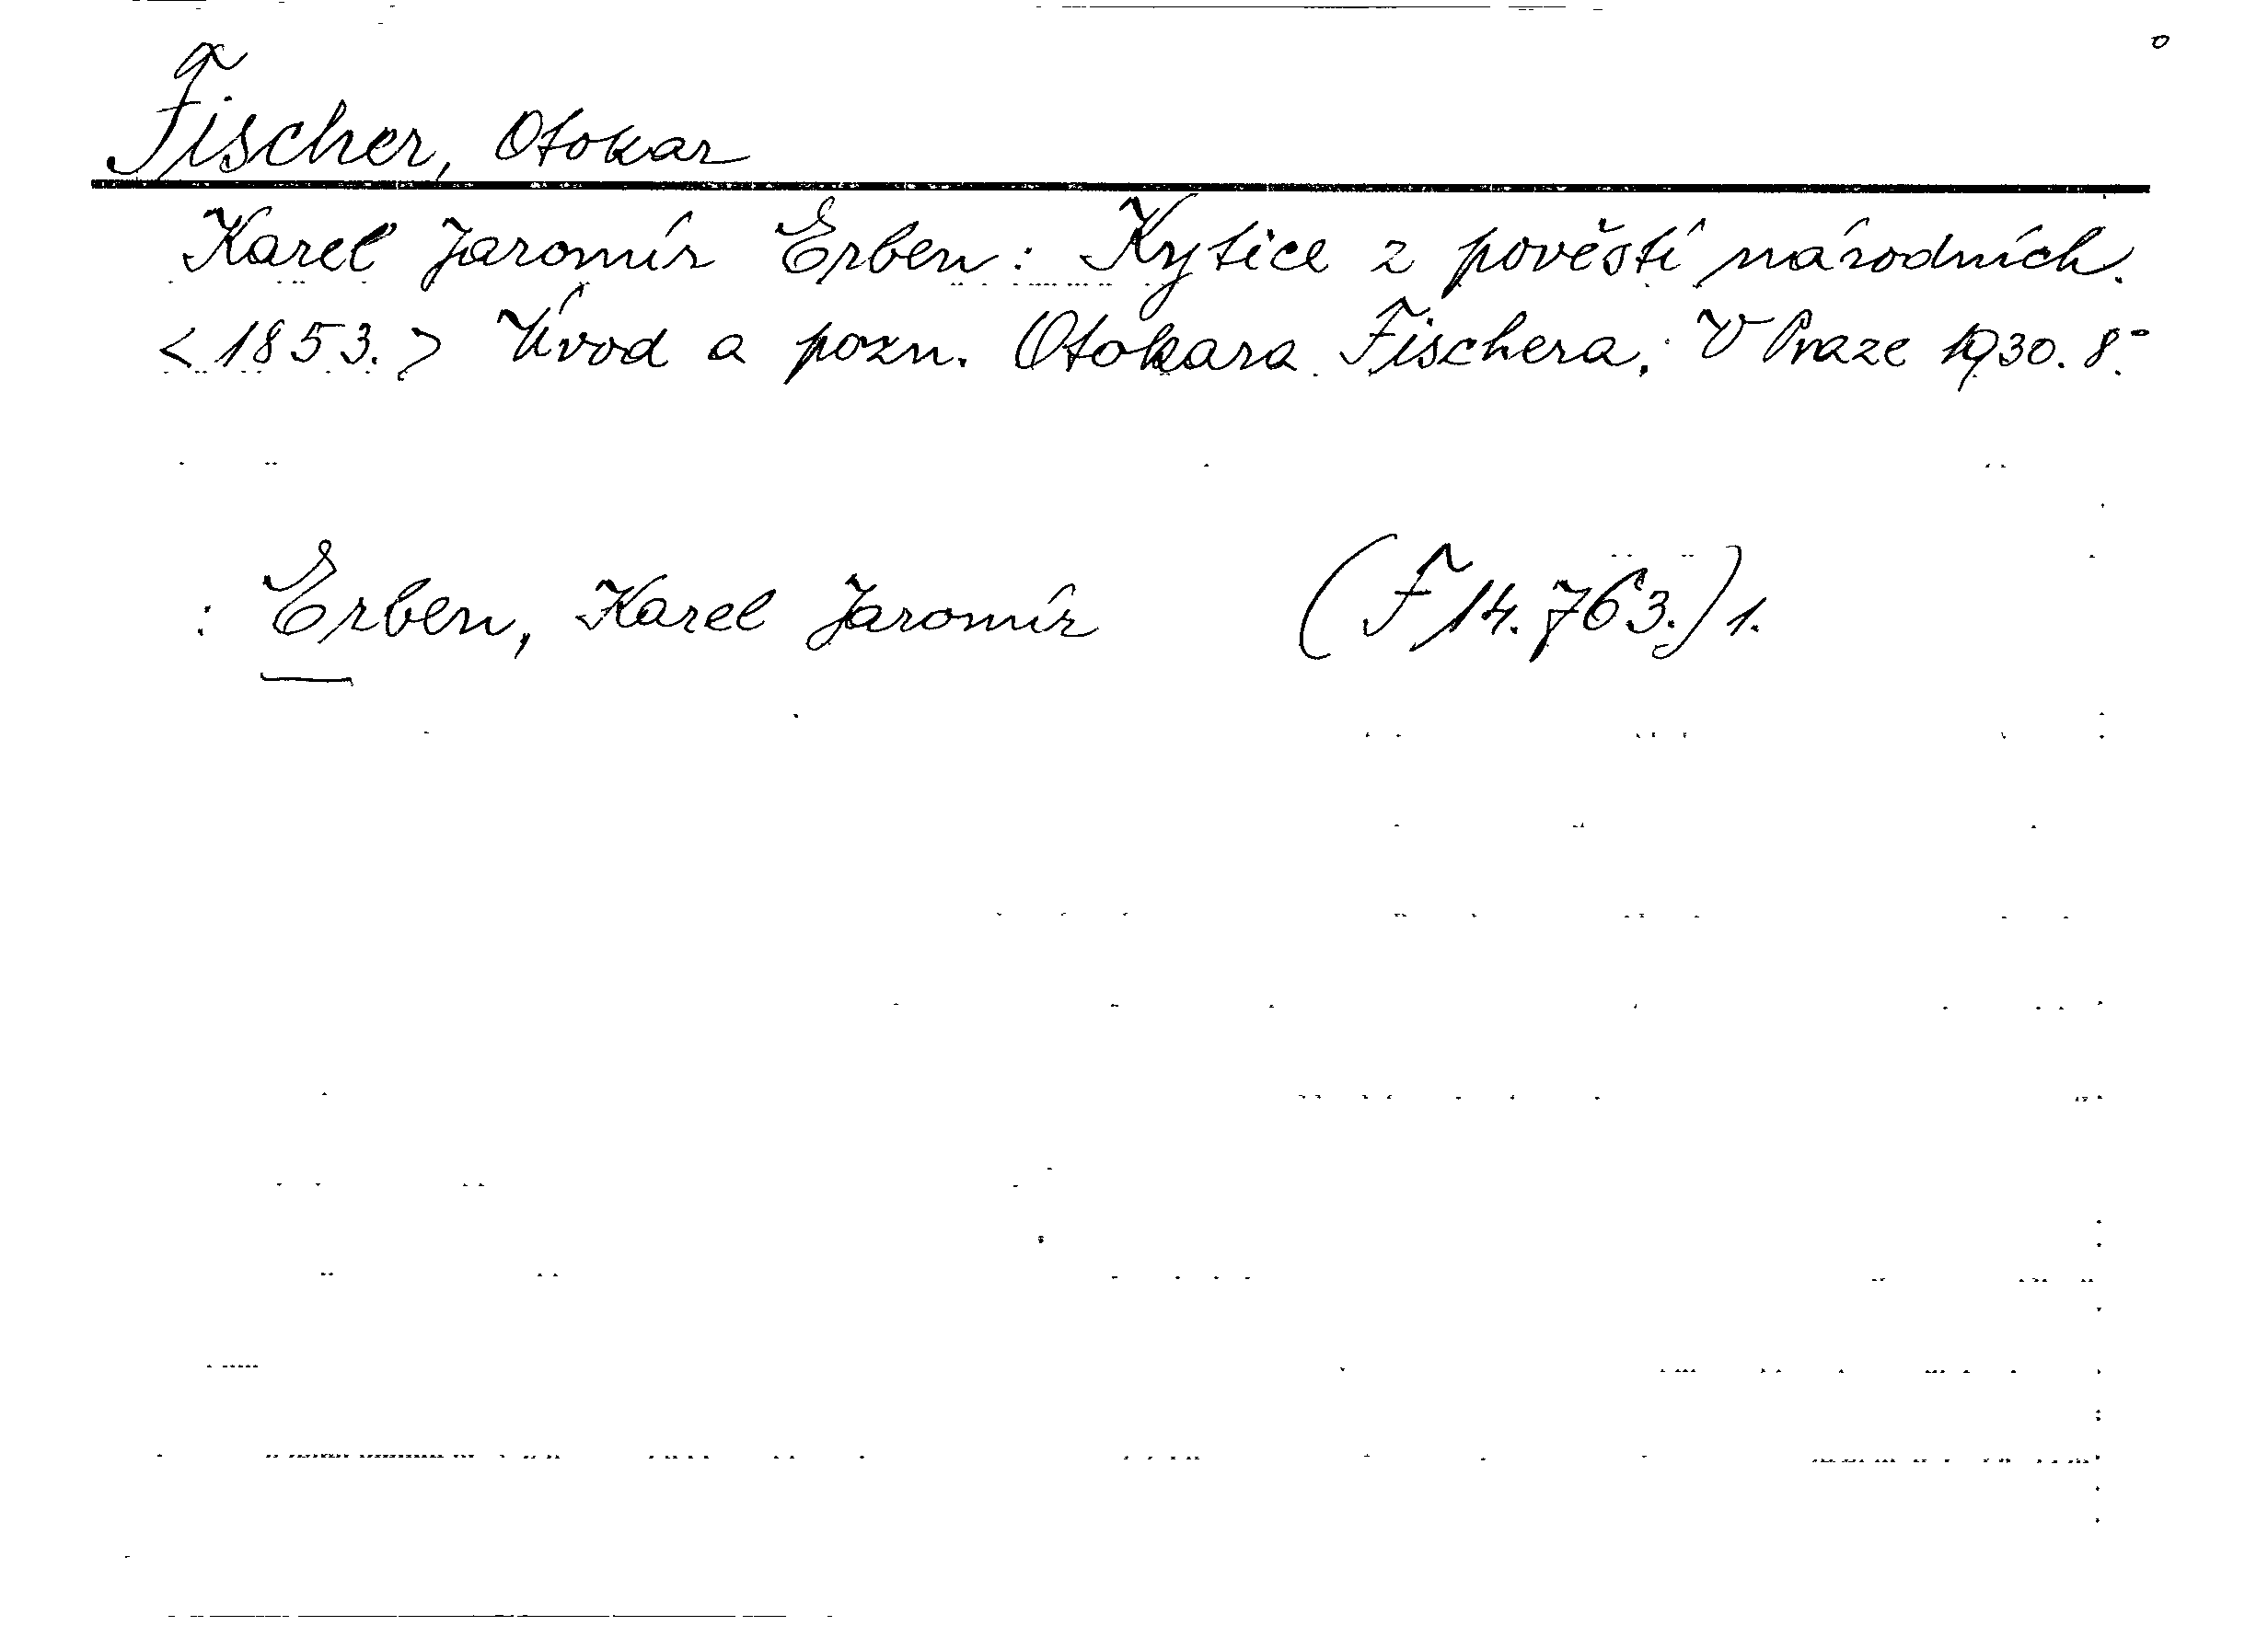 Fischer, Otokar
Karel Jaromír Erben: Kytice z pověstí národních.
<1853.> Úvod a pozn. Otokara Fischera. V Praze 1930. 8°.
: Erben, Karel Jaromír (F 14.763.) 1.